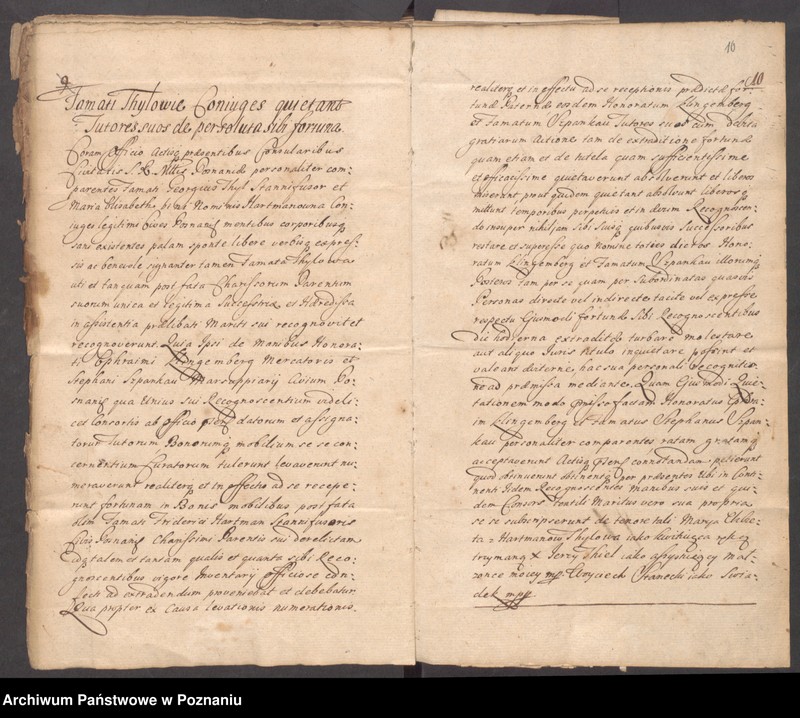 9
Famati Thylowie Coniuges quietant
Tutores suos de persoluta sibi fortuna
Coram Officio Actisq præsentibus Consularibus
Ciuitatis S. R. Mttis Posnaniæ personaliter com-
parentes famati Georgius Thyl Stannifusor et
Maria Elisabetha Hartmanowna Con-
iuges legitimi Ciues Posnanien mentibus corporibusq
sani existentes palam sponte libere verbisq expres-
sis ac beneuole signanter tamen Famata Thylowa
uti et tanquam post fata Charissorum Parentum
suorum unica et legitima Successrix et Hæredissa
in assistentia prælibati Mariti sui recognovit et
recognoverunt. Quia Ipsi de manibus Honora-
ti Ephraimi Klingemberg Mercatoris et
Stephani Szpankau Marsuppiarij Civium Po-
snanien qua Unius sui Recognoscentium videli-
cet Consortis ab officio datorum et assigna-
torum Tutorum Bonorumq mobilium se se con-
cernentium Curatorum tulerunt levaverunt nu-
meraverunt realiterq et in effectu ad se recepe-
runt fortunam in Bonis mobilibus post fata
olim Famati Friderici Hartman Stannifusoris
Civis Posnanien Charissimi Parentis sui derelictam
Idq talem et tantam qualis et quanta sibi Reco-
gnoscentibus vigore Inventarij officiose con-
fecti ad extradendum proveniebat et debebatur.
Qua propter ex Causa levationis numerationis
10
10
realiterq et in effectu ad se receptionis prædictæ for-
tunæ Paternæ eosdem Honoratum Klingemberg
et Famatum Szpankau Tutores suos cum debita
gratiarum Actione tam de extraditione fortunæ
quam etiam et de tutela quam sufficientissime
et efficacissime quietaverunt absolverunt et liberos
dixerunt prout quidem quietant absolvunt liberos o-
mittunt temporibus perpetuis et in ævum. Recognoscen-
do insuper nihil jam sibi suisq quibusvis Successoribus
restare et superesse quo nomine toties dictos Hono-
ratum Klingemberg et Famatum Szpankau illorumq
Posteros tam per se quam per Subordinatas quasvis
Personas directe vel indirecte tacite vel expresse
respectu Eiusmodi fortunæ sibi Recognoscentibus
die hodierna extraditæ turbare molestare
aut aliquo Iuris titulo inquietare possint et
valeant æterne, hac sua personali Recognitio-
ne ad præmissa mediante. Quam Eiusmodi Qui-
etationem modo præmisso factam Honoratus Ephra-
im Klingemberg et Famatus Stephanus Szpan-
kau personaliter comparentes ratam gratamq
acceptaverunt Actisq connotandam petierunt
quod obtinuerunt obtinent per præsentes Ubi in Conti-
nenti Idem Recognoscentes Manibus suis et qui-
dem Consors tentili Maritus vero sua propria
se se subscripserunt de tenore tali Marya Elzbie-
ta z Hartmanow Thylowa iako kwituiąca ręką
trzymaną X Jerzy Thiel iako assystuiący Mał-
zonce moiey mpp. Woyciech Franecki iako Swia-
dek mpp
Archiwum Państwowe w Poznaniu